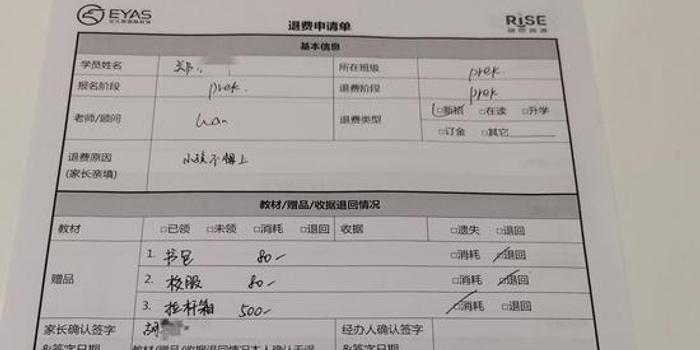 EYAS
RISE
瑞思英语
退费申请单
基本信息
学员姓名 郑 所在班级 prek.
报名阶段 prek. 退费阶段 prek
老师/顾问 han 退费类型 □新招 □在读 □升学
□订金 □其它
退费原因 小孩不想上
(家长亲填)
教材/赠品/收据退回情况
教材 □已领 □未领 □消耗 □退回 收据 □遗失 □退回
赠品
1. 书包 80- □消耗 □退回
2. 校服 80- □消耗 □退回
3. 拉杆箱 500- □消耗 □退回
家长确认签字 胡 经办人确认签字
&签字日期 教材/赠品/收据退回情况本人确认无误 &签字日期